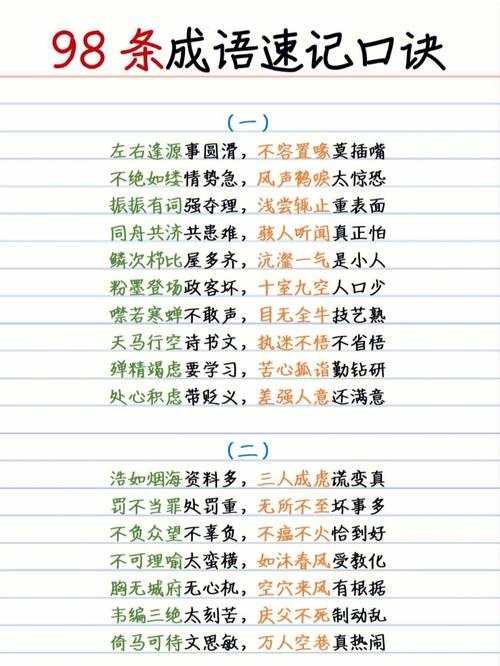 98条成语速记口诀
（一）
左右逢源事圆滑，不容置喙莫插嘴
不绝如缕情势急，风声鹤唳太惊恐
振振有词强夺理，浅尝辄止重表面
同舟共济共患难，骇人听闻真正怕
鳞次栉比屋多齐，沆瀣一气是小人
粉墨登场政客坏，十室九空人口少
噤若寒蝉不敢声，目无全牛技艺熟
天马行空诗书文，执迷不悟不省悟
殚精竭虑要学习，苦心孤诣勤钻研
处心积虑带贬义，差强人意还满意
（二）
浩如烟海资料多，三人成虎谎变真
罚不当罪处罚重，无所不至坏事多
不负众望不辜负，不瘟不火恰到好
不可理喻太蛮横，如沐春风受教化
胸无城府无心机，空穴来风有根据
韦编三绝太刻苦，庆父不死制动乱
倚马可待文思敏，万人空巷真热闹